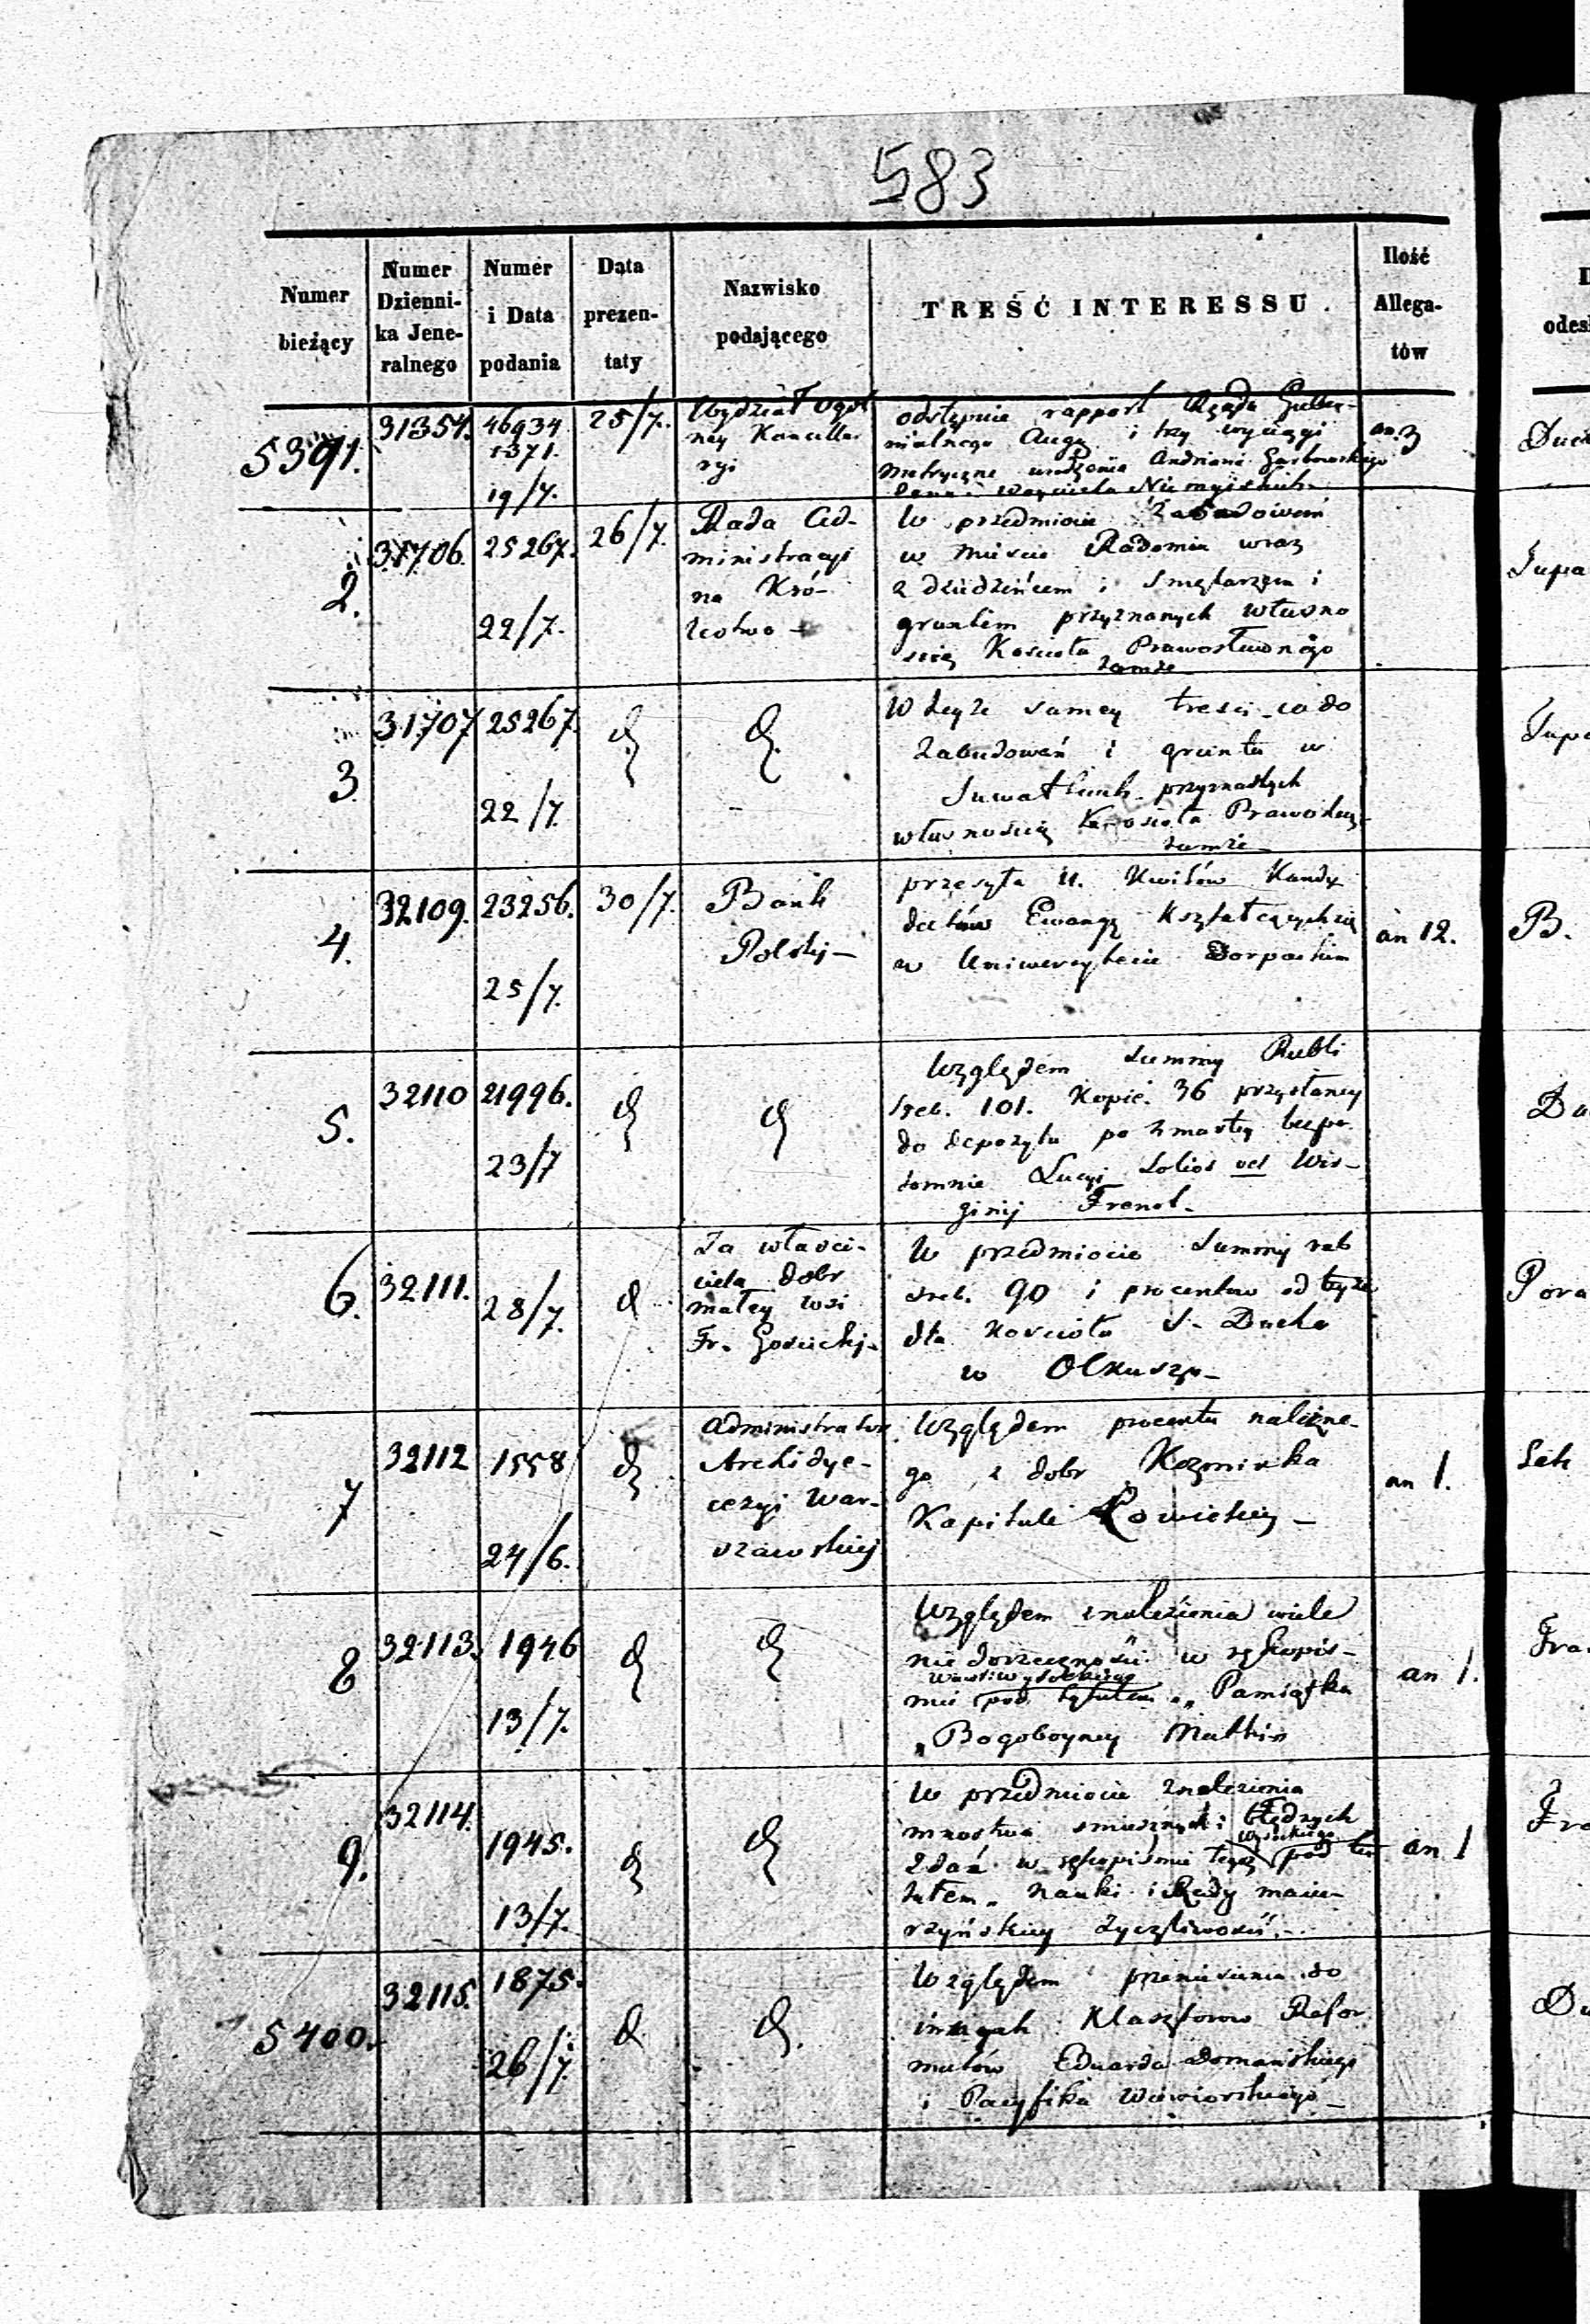 583
Numer bieżący
Numer Dzienni- ka Jene- ralnego
Numer i Data podania
Data prezen- taty
Nazwisko podającego
TREŚĆ INTERESSU.
Ilość Allega- tów
5391.
31354.
46934
1371.
19/7.
25/7.
Wydział Ogól
ney Kancella-
ryi
odstępuie rapport Rządu Guber-
nialnego Augu i trzy wyciągi
metryczne urodzenia Andriana
an. 3
2.
31706.
25267.
22/7.
26/7.
Rada Ad-
ministracyi
na Kró-
lestwa -
W przedmiocie Zabudowań
w Mieście Radomiu wraz
z dziedzińcem i Smętarzem i
gruntem przyznanych własno
ścią Kościoła Prawosławnego
tamże
3
31707
25267.
22/7.
W teyże samey treści co do
Zabudowań i gruntu w
Suwałkach przyznałych
własnością Kościoła Prawosław
tamże -
4.
32109.
23256.
25/7.
30/7.
Bank
Polski -
przesyła 11. Kwitów Kandy
datów Ewang Kształcących się
w Uniwersytecie Dorpackim
an 12.
5.
32110
21996.
23/7
Względem Summy Rubli
Sreb. 101. Kopie. 36 przysłaney
do depozytu po zmarłey bezpo-
tomnie Lucyi Wir-
ginij Frenol -
6.
32111.
28/7.
Za właści-
ciela dobr
małey wsi
Fr. Gościcki -
W przedmiocie Summy rub
sreb. 90 i procentów od teyże
dla Kościoła S. Ducha
w Olkuszu -
7
32112
1558
24/6.
Administrator
Archidye-
cezyi War-
szawskiej
Względem procentu należne-
go z dobr Kozminka
Kapitule Łowickiey -
an 1.
8
32113.
1946
13/7.
Względem znalezienia wiele
niedorzeczności w rękopis-
mie pod tytułem „Pamiątka
„Bogoboyney Matki"
an 1.
9.
32114.
1945.
13/7.
W przedmiocie znalezienia
mnostwa smiesznych i błędnych
Wysockiego
zdań w rękopiśmie tegoż pod ty
tułem „Nauki i Rady macie-
rzyńskiey życzliwości". -
an 1
5400.
32115.
1875.
26/7.
Względem przeniesienia do
innych Klasztorow Refor
matów Eduarda Domańskiego
i Pacyfika Wiewiorskiego -